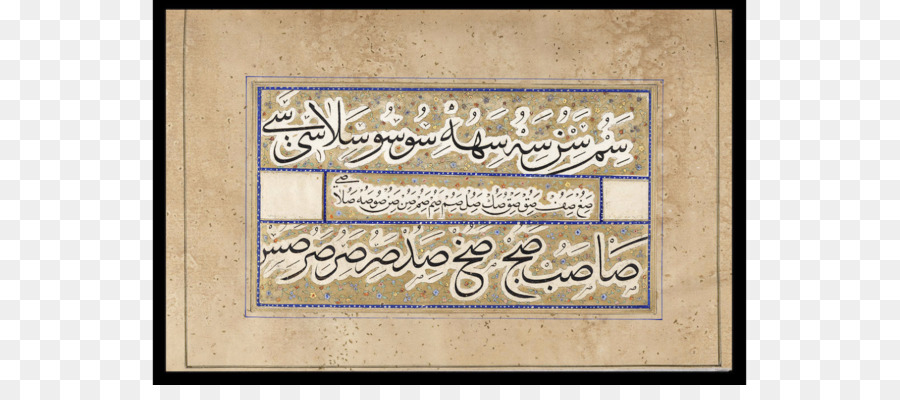 سم سن سه سهه سو سو سلا سى سے
صع صف صق صو صك صل صم صم صم صن صن صو صه صلا صے
صا صب صج صد صر صر صر صس